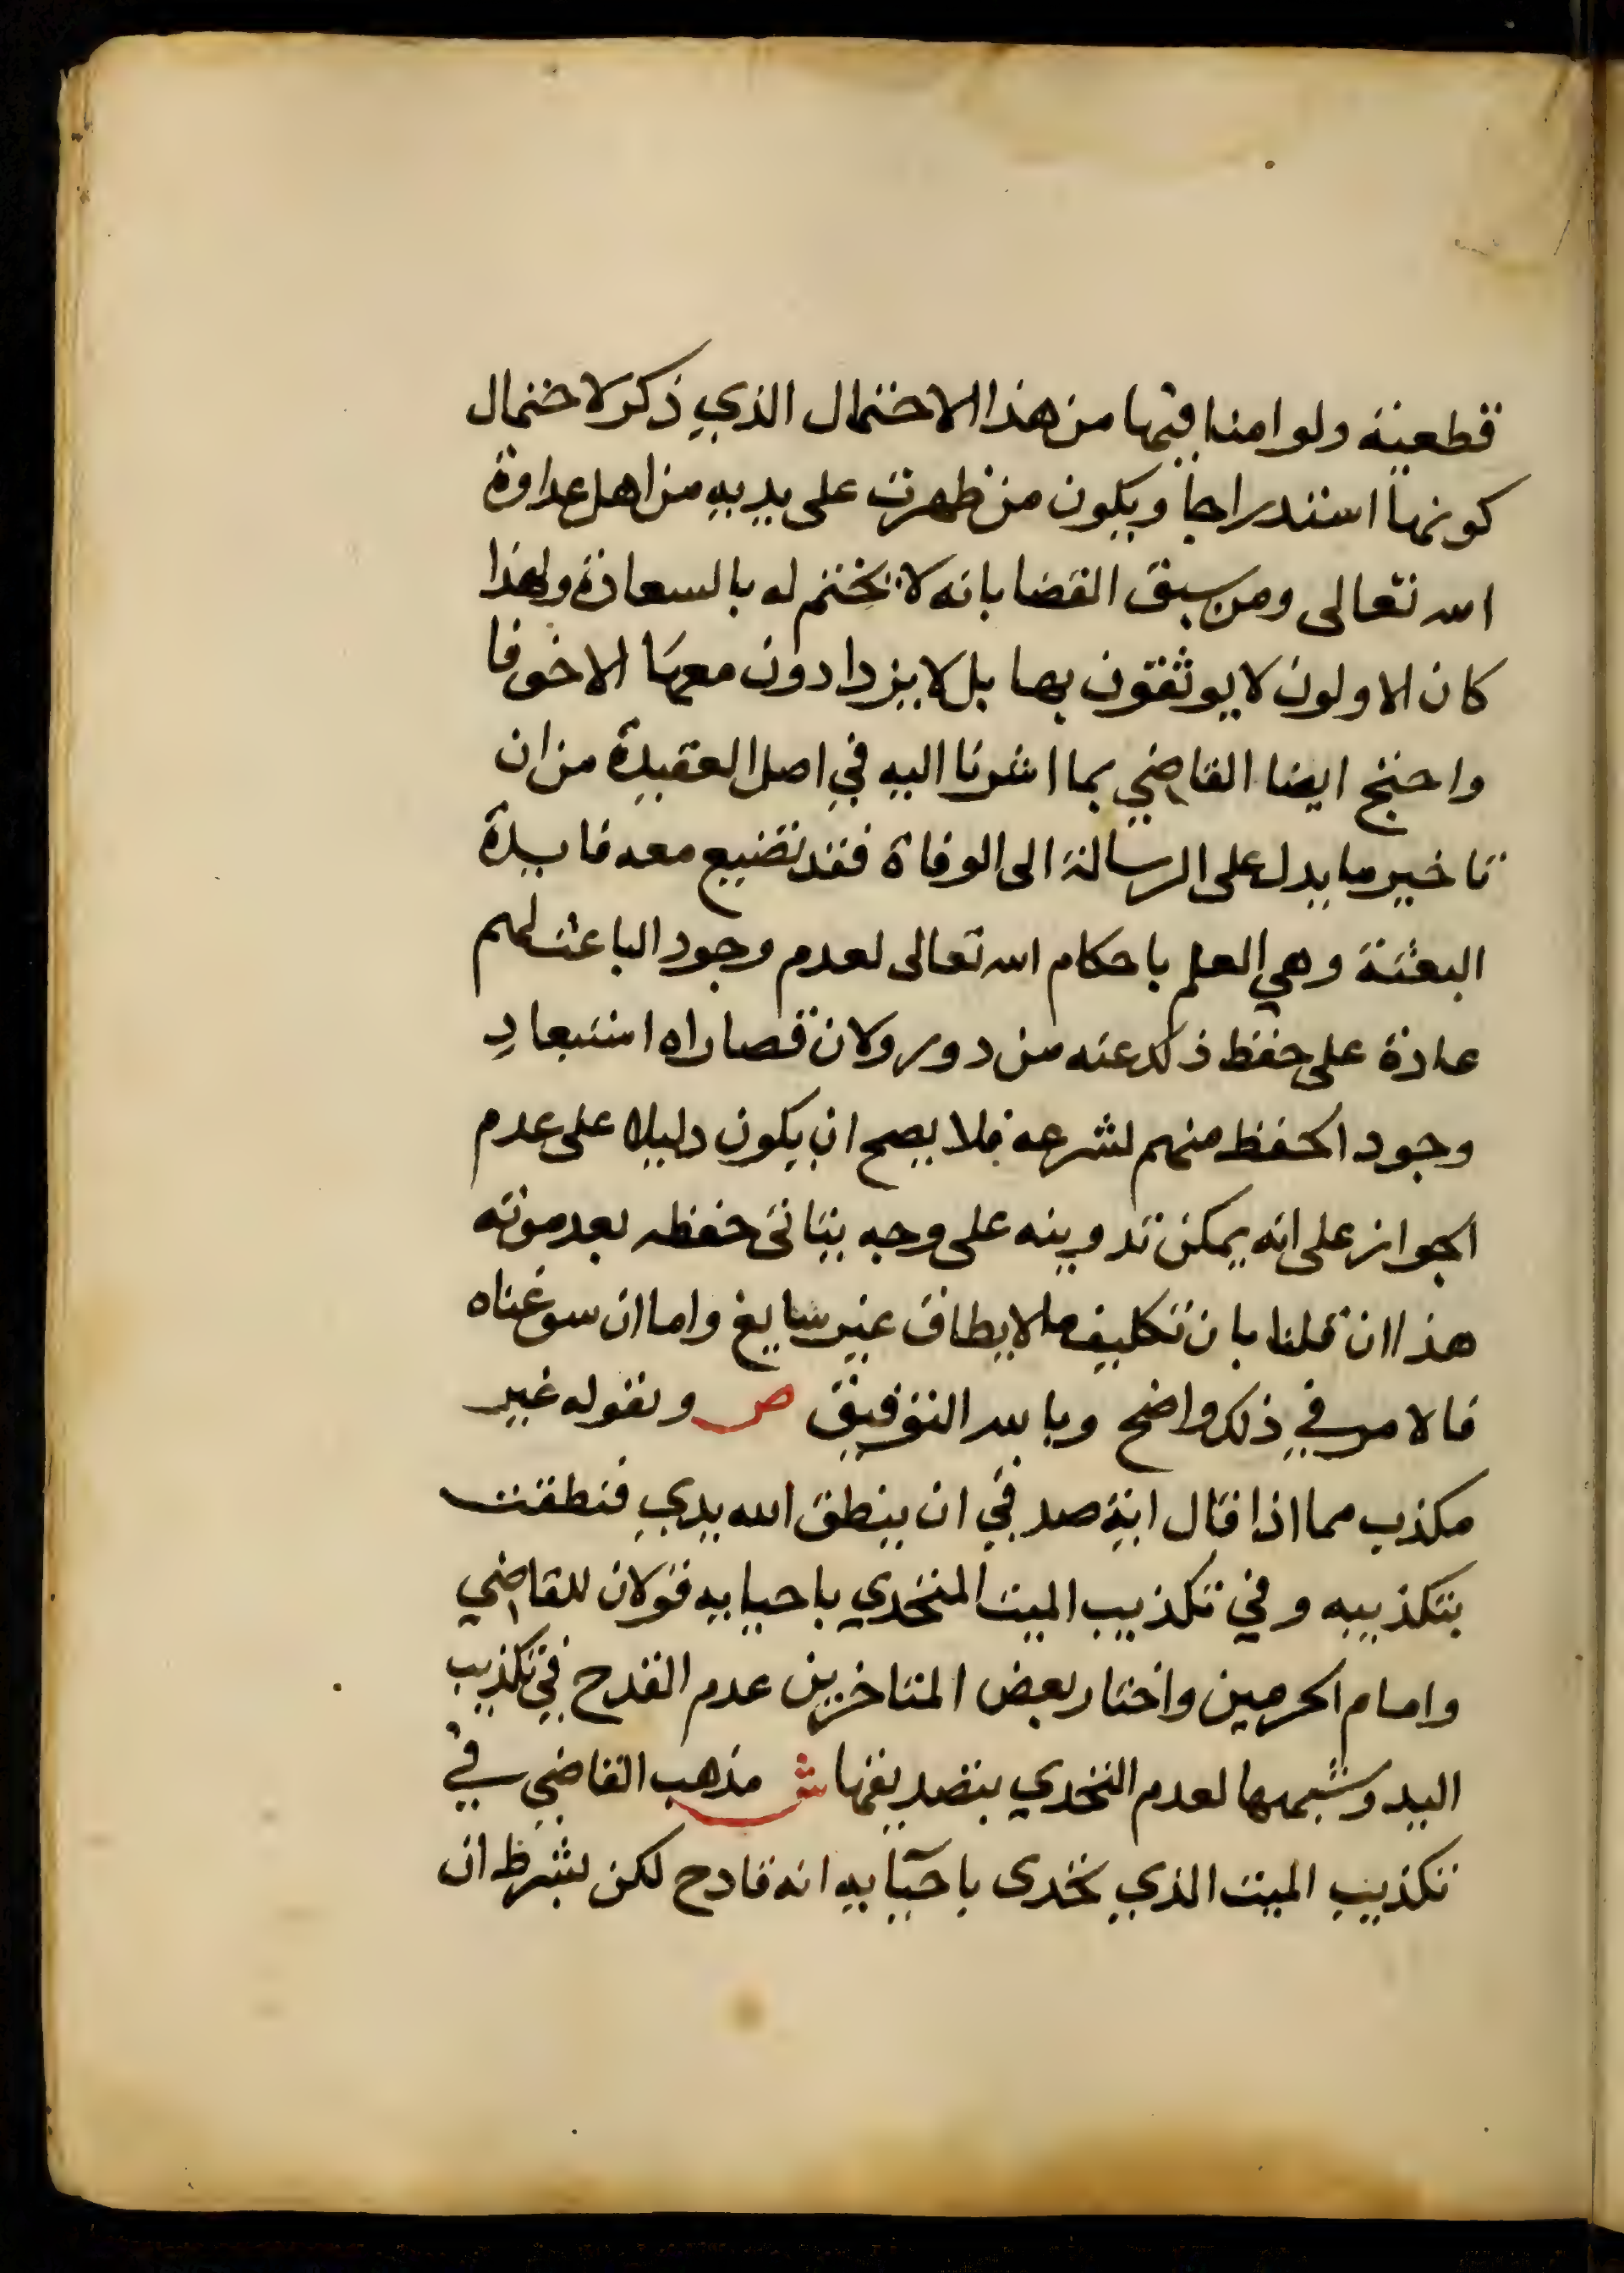 قطعية ولو امنا فيها من هذا الاحتمال الذي ذكر لاحتمال
كونها استدراجا ويكون من ظهرت على يديه من اهل عداوة
الله تعالى ومن سبق القضا بانه لا يختم له بالسعادة ولهذا
كان الاولون لا يوثقون بها بل لا يزدادون معها الا خوفا
واحتج ايضا القاضي بما اشرنا اليه في اصل العقيدة من ان
تاخير ما يدل على الرسالة الى الوفاة فقد تضيع معه فايدة
البعثة وهي العلم باحكام الله تعالى لعدم وجود الباعث لهم
عادة على حفظ ذلك عنه من دور ولان قصاراه استبعاد
وجود الحفظ منهم لشرعه فلا يصح ان يكون دليلا على عدم
الجواز على انه يمكن تدوينه على وجه يتاتى حفظه بعد موته
هذا ان قلنا بان تكليف ما لا يطاق غير سايغ واما ان سوغناه
فالامر في ذلك واضح وبالله التوفيق ص وبقوله غير
مكذب مما اذا قال اية صدقي ان ينطق الله يدي فنطقت
بتكذيبه وفي تكذيب الميت المتحدي باحيايه قولان للقاضي
وامام الحرمين واختار بعض المتاخرين عدم القدح في تكذيب
اليد وشبهها لعدم التحدي بتصديقها ش مذهب القاضي في
تكذيب الميت الذي تحدى باحيايه انه قادح لكن بشرط ان